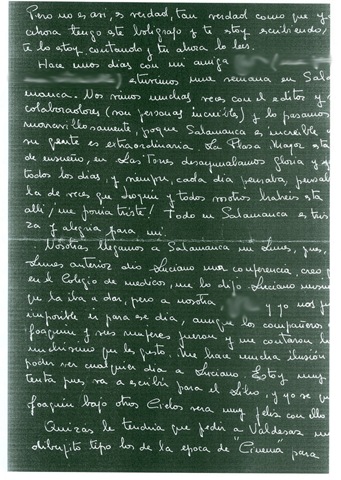 Pero no es asi, es verdad, tan verdad como que y
ahora tengo este boligrafo y te estoy escribiendo,
te lo estoy contando y tu ahora lo lees.
Hace unos dias con mi amiga
estuvimos una semana en Sala
manca. Nos vimos muchas veces con el editor y
colaboradores (son personas increibles) y lo pasamos
maravillosamente, porque Salamanca es increible
su gente es extraordinaria. La Plaza Mayor esta
de ensueño, en Las Torres desayunabamos Gloria y yo
todos los dias, y siempre, cada dia pensaba, pensab
la de veces que Joaquin y todos vosotros habreis esta
alli, me ponia triste! Todo en Salamanca es tris
za y alegria para mi.
Nosotras llegamos a Salamanca un Lunes, pues,
Lunes anterior dio Luciano una conferencia, creo
en el Colegio de medicos, me lo dijo Luciano mism
que la iba a dar, pero a nosotras, y yo nos fu
imposible ir para ese dia, aunque los compañeros
Joaquin y sus mujeres fueron y me contaron
muchisimo que les gusto. Me hace mucha ilusion
poder ver cualquier dia a Luciano. Estoy muy
tenta pues va a escribir para el Libro, y yo se qu
Joaquin bajo otros Cielos sera muy feliz con ello
Quizas le tendria que pedir a Valdesar un
dibujito tipo los de la epoca de "Cinema" para